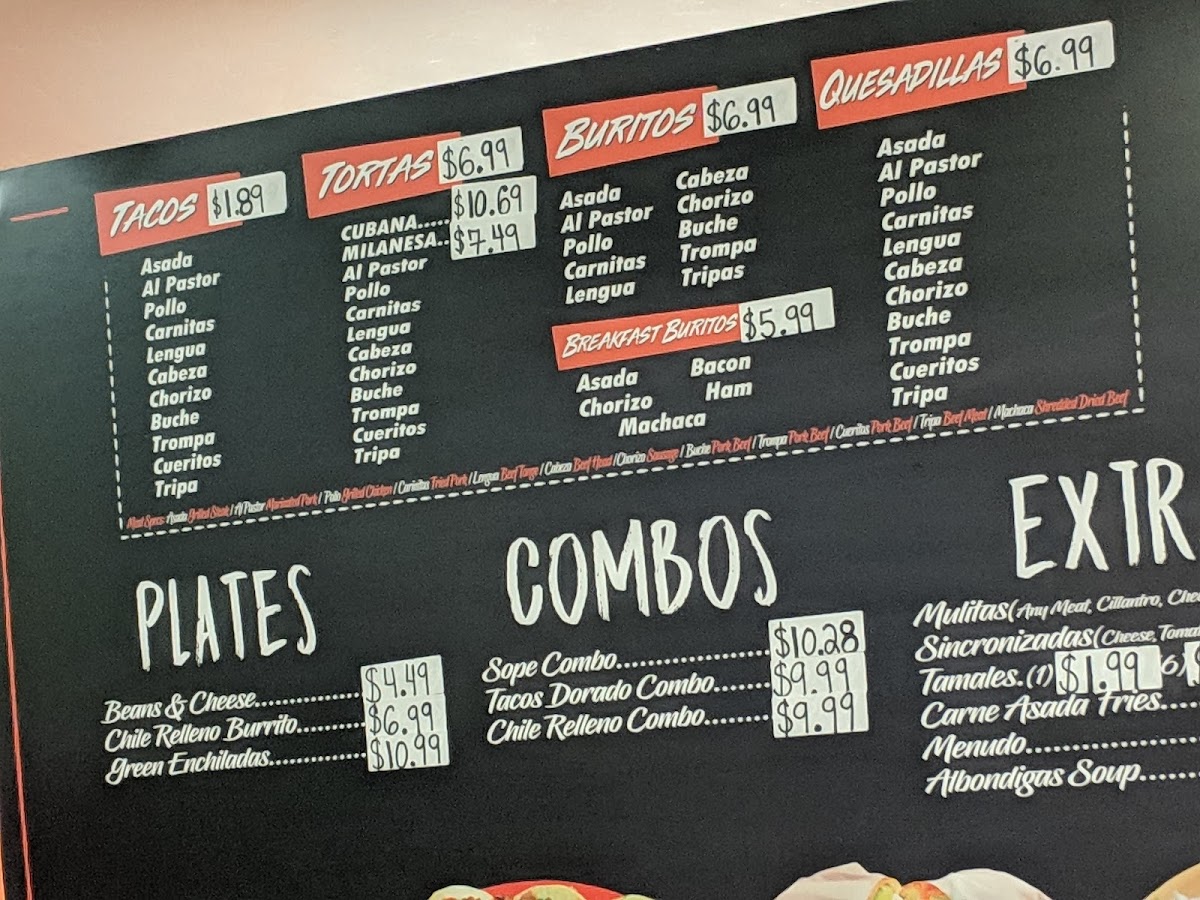 TACOS $1.89
Asada
Al Pastor
Pollo
Carnitas
Lengua
Cabeza
Chorizo
Buche
Trompa
Cueritos
Tripa
TORTAS $6.99
CUBANA..... $10.69
MILANESA.. $7.49
Al Pastor
Pollo
Carnitas
Lengua
Cabeza
Chorizo
Buche
Trompa
Cueritos
Tripa
BURITOS $6.99
Asada
Al Pastor
Pollo
Carnitas
Lengua
Cabeza
Chorizo
Buche
Trompa
Tripas
BREAKFAST BURITOS $5.99
Asada
Chorizo
Bacon
Ham
Machaca
QUESADILLAS $6.99
Asada
Al Pastor
Pollo
Carnitas
Lengua
Cabeza
Chorizo
Buche
Trompa
Cueritos
Tripa
Meat Specs: Asada Grilled Steak / Al Pastor Marinated Pork / Pollo Grilled Chicken / Carnitas Fried Pork / Lengua Beef Tonge / Cabeza Beef Head / Chorizo Sausage / Buche Pork Beef / Trompa Pork Beef / Cueritos Pork Beef / Tripa Beef Meat / Machaca Shredded Dried Beef
PLATES
Beans & Cheese............... $4.49
Chile Relleno Burrito.......... $6.99
Green Enchiladas.............. $10.99
COMBOS
Sope Combo..................... $10.28
Tacos Dorado Combo....... $9.99
Chile Relleno Combo........ $9.99
EXTR
Mulitas(Any Meat, Cillantro, Chee
Sincronizadas(Cheese, Toma
Tamales.(1) $1.99 6)
Carne Asada Fries....
Menudo.....................
Albondigas Soup......